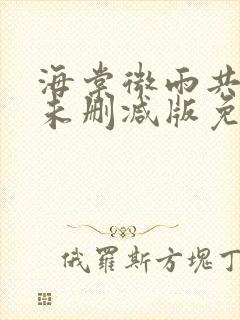 海棠微雨共
未删减版免
俄罗斯方塊丁